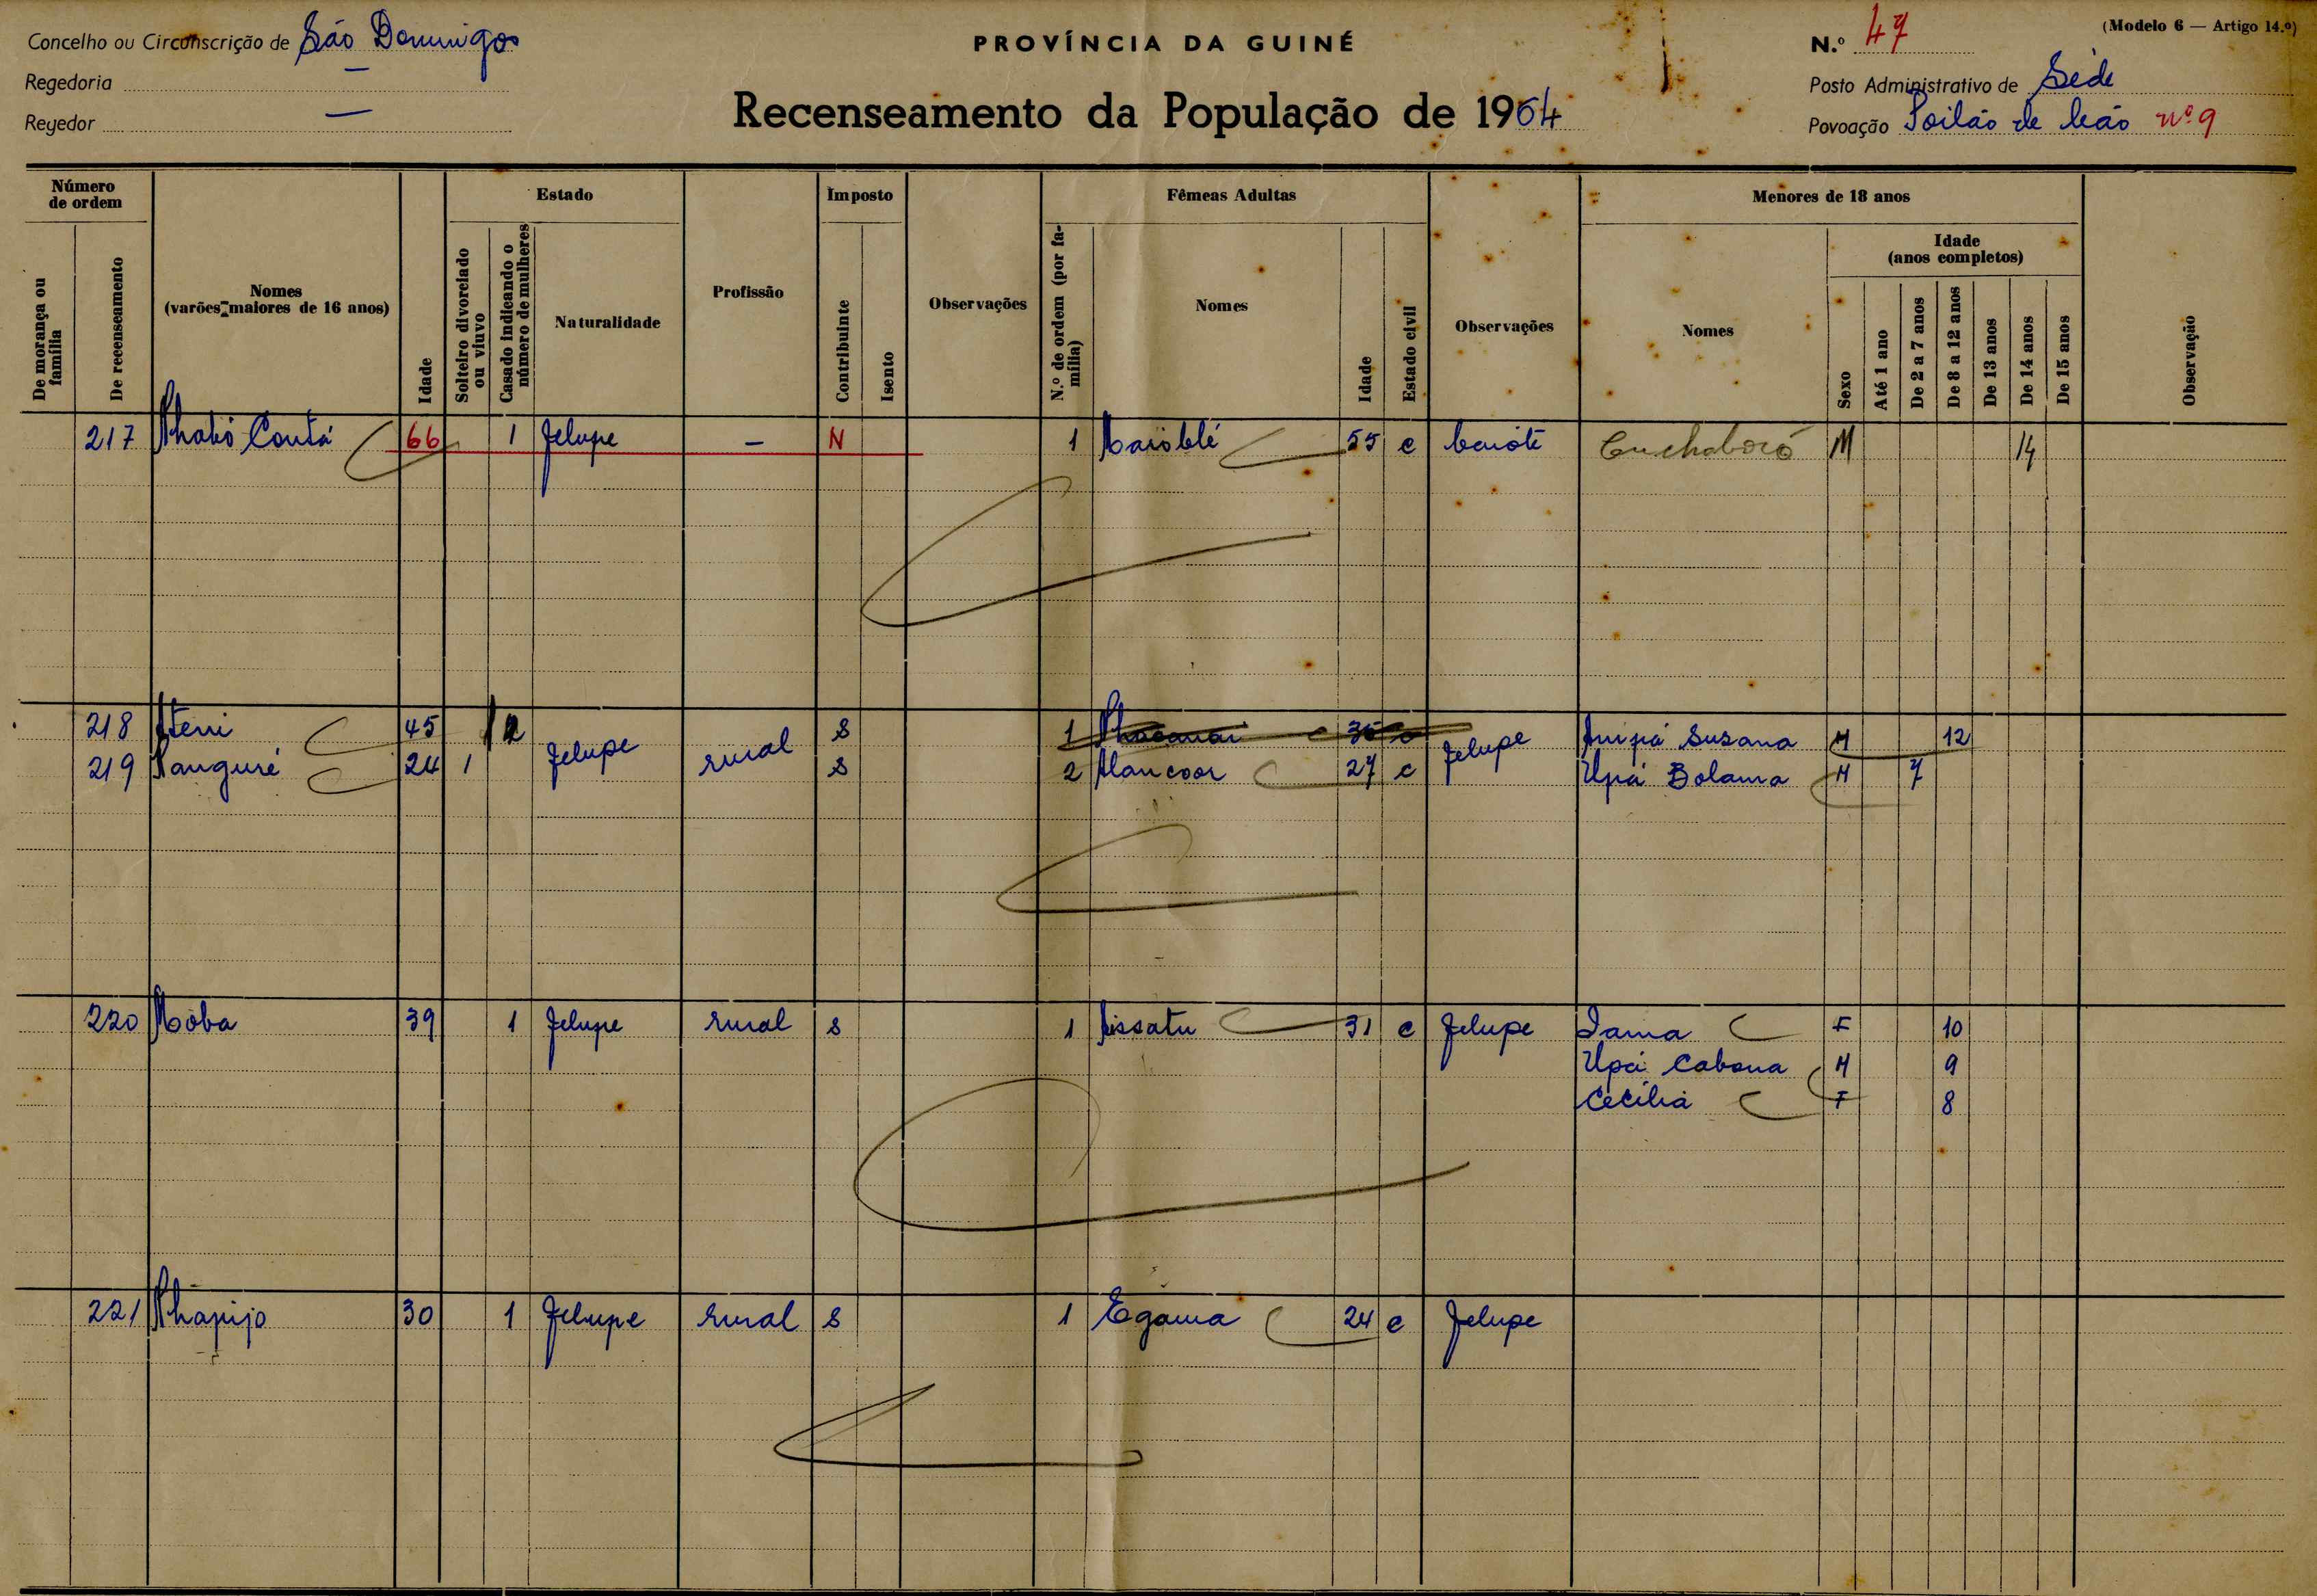 Concelho ou Circunscrição de São Domingos
Regedoria —
Regedor —
PROVÍNCIA DA GUINÉ
Recenseamento da População de 1964
(Modelo 6 — Artigo 14.º)
N.º 47
Posto Administrativo de Séde
Povoação Poilão de Leão nº 9
Número de ordem
De morança ou família
De recenseamento
Nomes
(varões maiores de 16 anos)
Idade
Estado
Solteiro divorciado ou viuvo
Casado indicando o número de mulheres
Naturalidade
Profissão
Imposto
Contribuinte
Isento
Observações
Fêmeas Adultas
N.º de ordem (por família)
Nomes
Idade
Estado civil
Observações
Menores de 18 anos
Nomes
Sexo
Idade
(anos completos)
Até 1 ano
De 2 a 7 anos
De 8 a 12 anos
De 13 anos
De 14 anos
De 15 anos
Observação
217 66 1 Felupe — N 1 55 c baiote M 14
218 45 2 Felupe rural S 1 Felupe Susana M 12
219 24 1 S 2 Alancoor 27 c Upá Bolama M 7
220 39 1 Felupe rural S 1 Aissatu 31 c Felupe Dama F 10
Upá Cabona M 9
Cecilia F 8
221 30 1 Felupe rural S 1 Egama 24 c Felupe